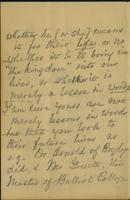 whether he (or she) means
it for their lifes or no
whether it is to bring in
"the kingdom" into our
lives, or whether it is
merely a lesson in words
I am sure yours are not
merely lessons in words
but that you look to
their future lives as
e.g. Dr. Arnold of Rugby
did, & Mr. Jowett, the
Master of Balliol College